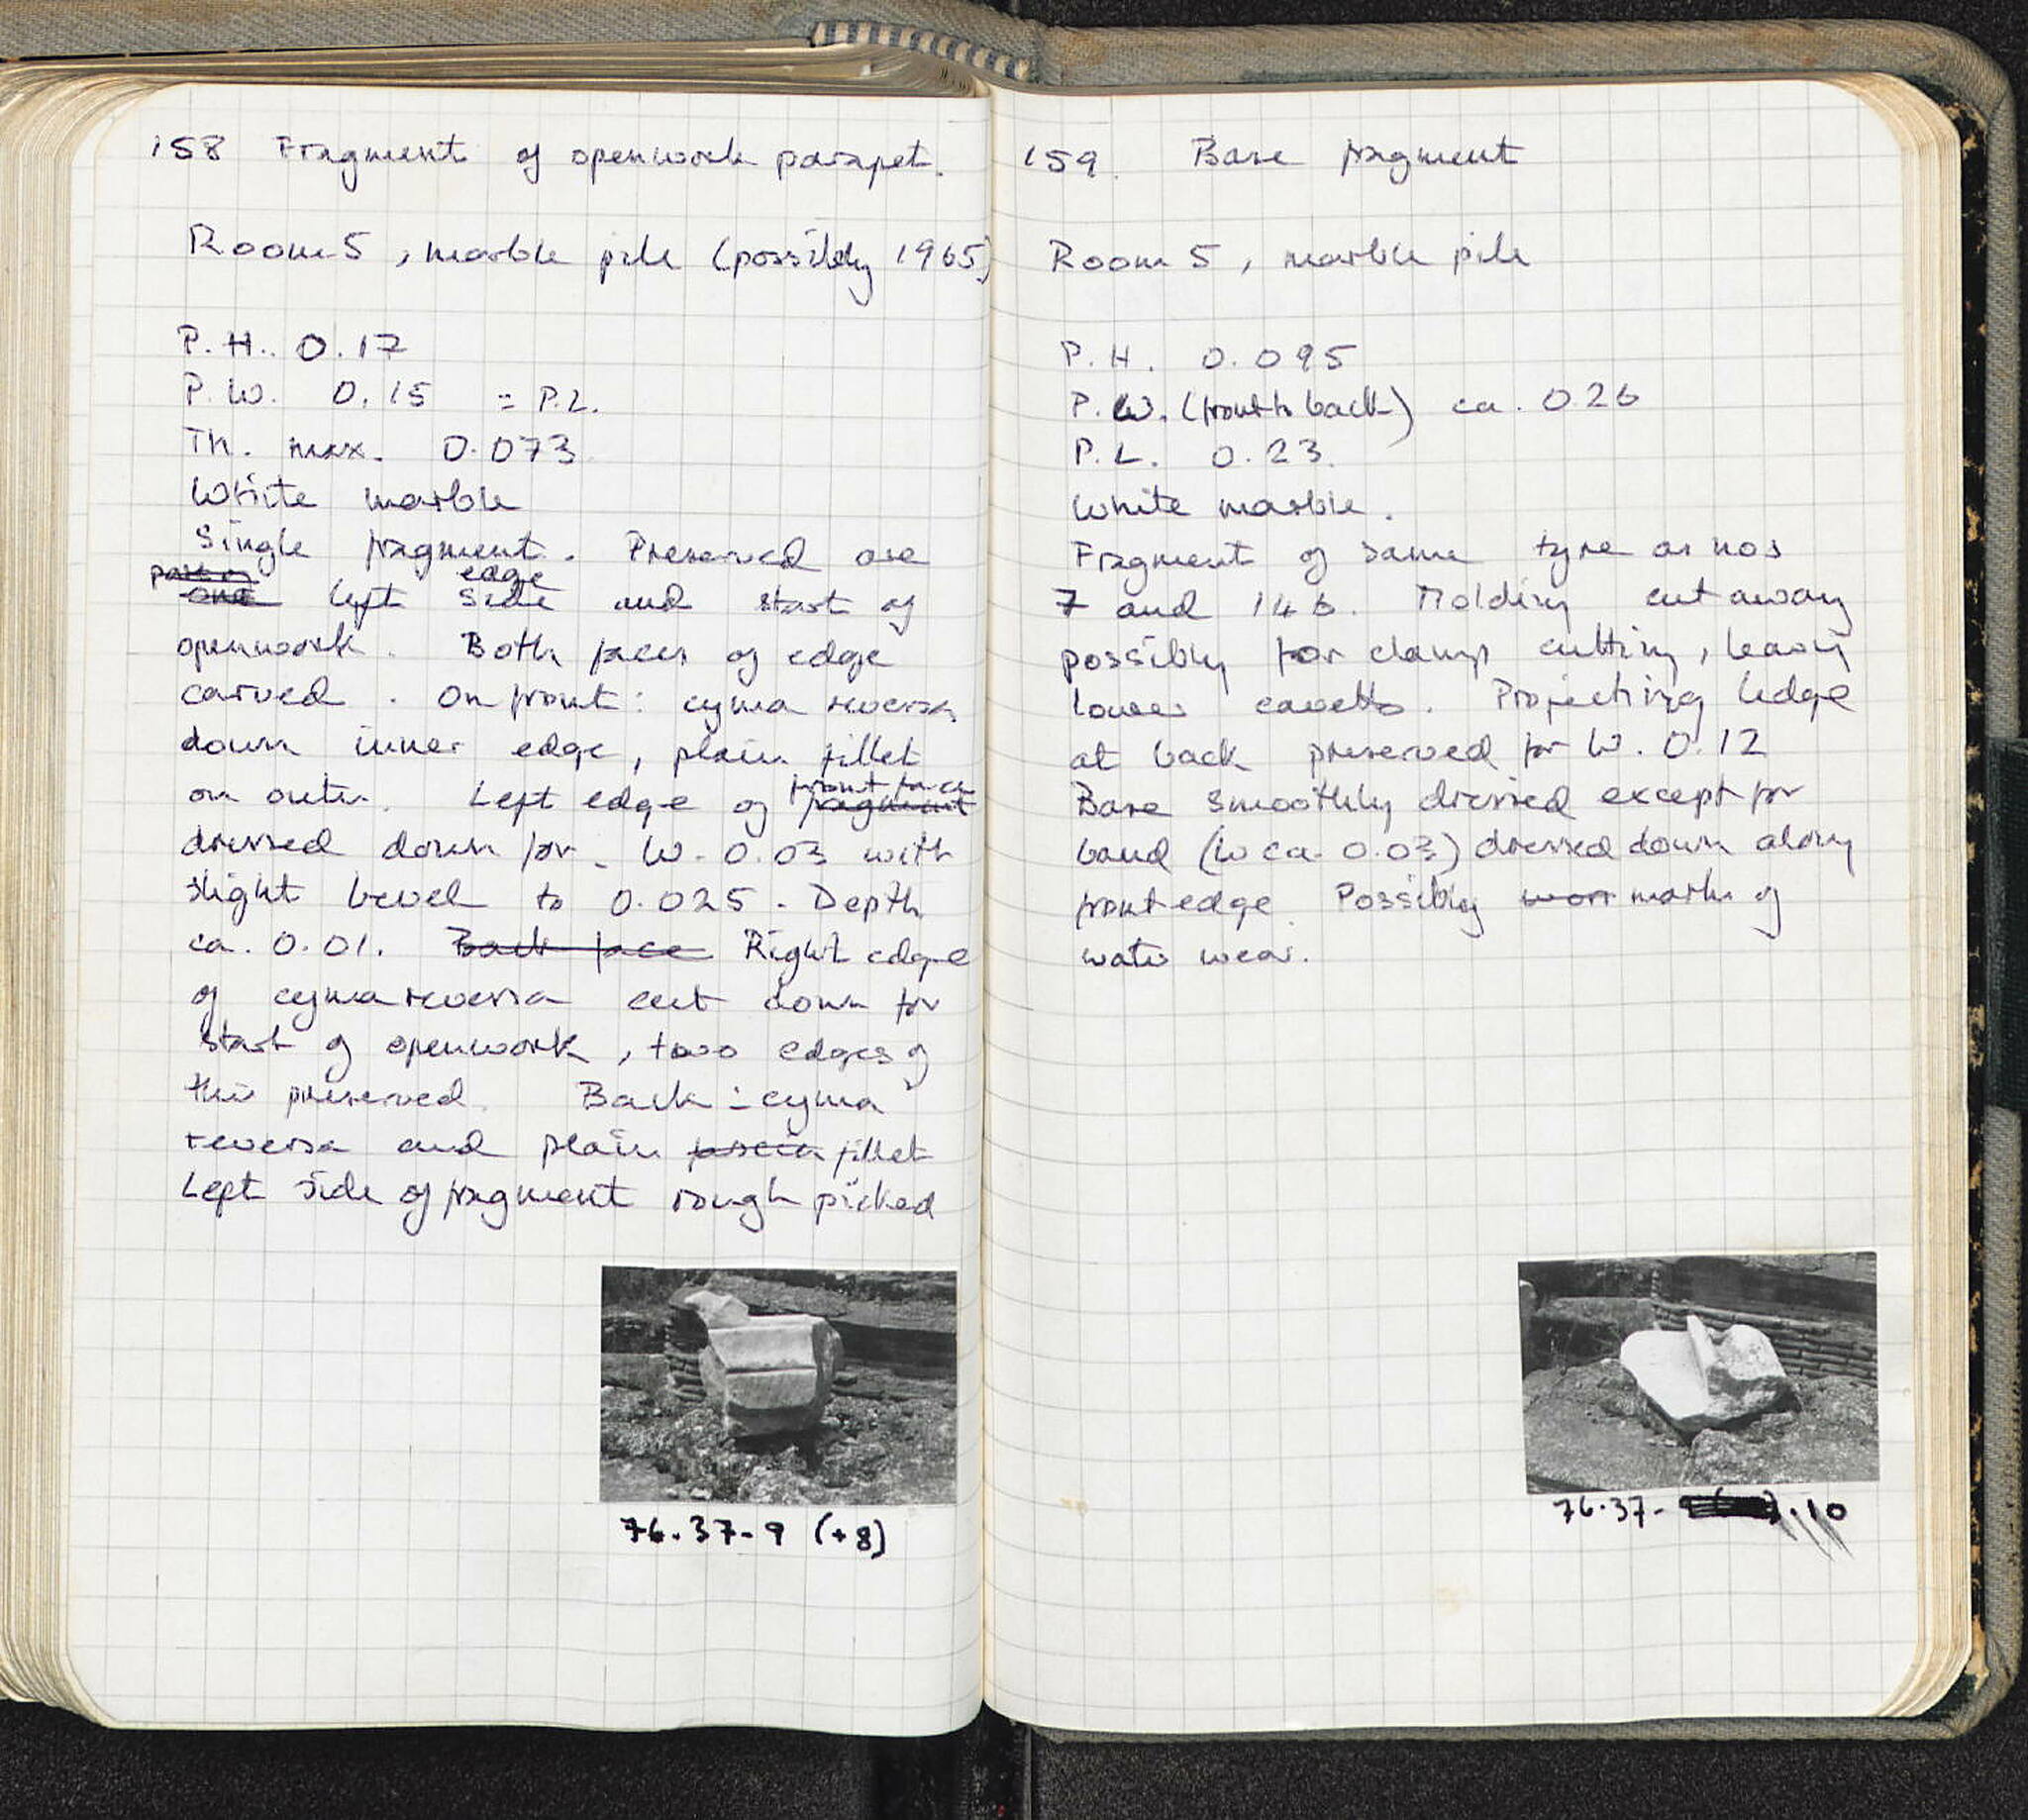 158 Fragment of openwork parapet.
Room 5, marble pile (possibly 1965)
P.H. 0.17
P.W. 0.15 = P.L.
Th. max. 0.073
White marble
Single fragment. Preserved are
part of
one left side edge and start of
openwork. Both faces of edge
carved. On front: cyma reversa
down inner edge, plain fillet
on outer. Left edge of fragment front face
dressed down for W. 0.03 with
slight bevel to 0.025. Depth
ca. 0.01. Back face Right edge
of cyma reversa cut down for
start of openwork, two edges of
this preserved. Back: cyma
reversa and plain fascia fillet
Left side of fragment rough picked
76.37-9 (+8)
159. Base fragment
Room 5, marble pile
P.H. 0.095
P.W. (front to back) ca. 0.26
P.L. 0.23.
White marble.
Fragment of same type as nos
7 and 146. Molding cut away
possibly for clamp cutting, leaving
lower cavetto. Projecting ledge
at back preserved for W. 0.12
Base smoothly dressed except for
band (W ca. 0.03) dressed down along
front edge. Possibly worn marks of
water wear.
76.37- .10